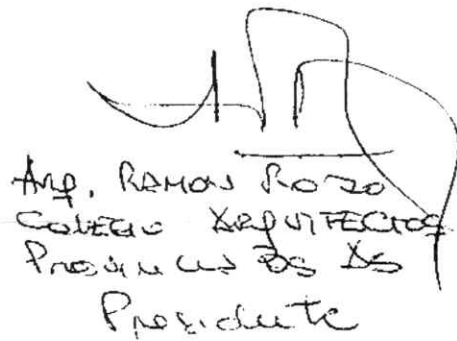 Arq. RAMON ROJO
COLEGIO ARQUITECTOS
Provincia Bs As
Presidente